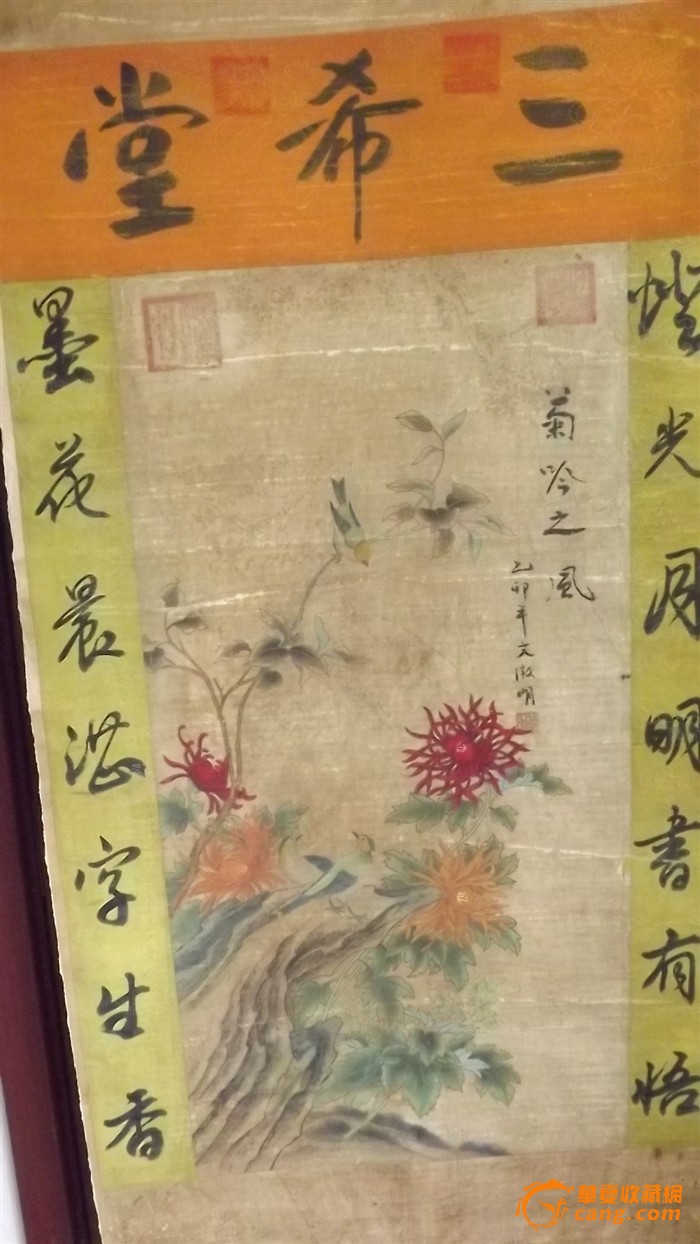 三希堂
燈光月明書有悟
菊吟之風
乙卯年文徵明
墨花晨湛字生香
華夏收藏網
cang.com